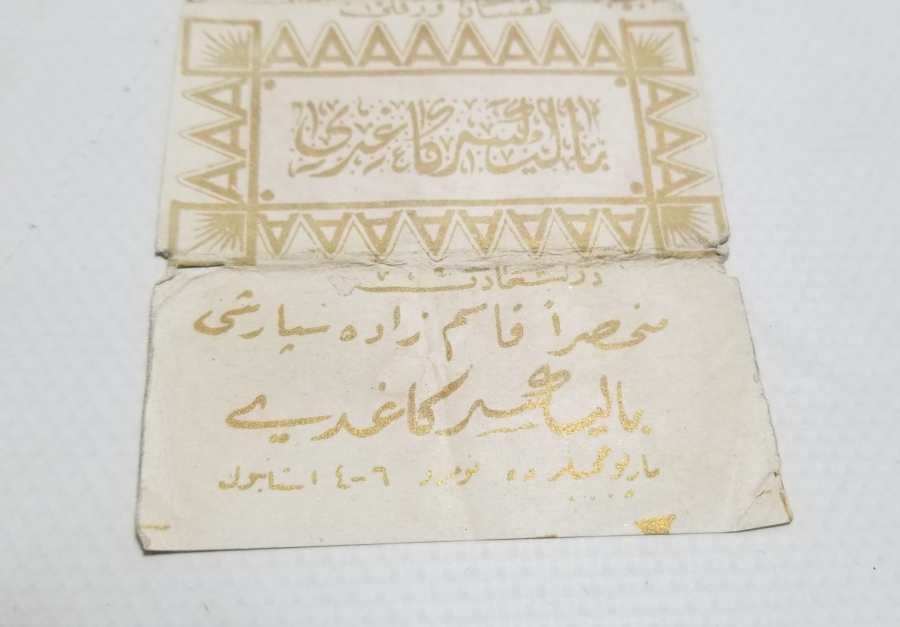 باليكسر كاغدی
درسعادت
منحصراً قاسم زاده سپارشی
باليكسر كاغدی
نومرو ٦-٤ استانبول